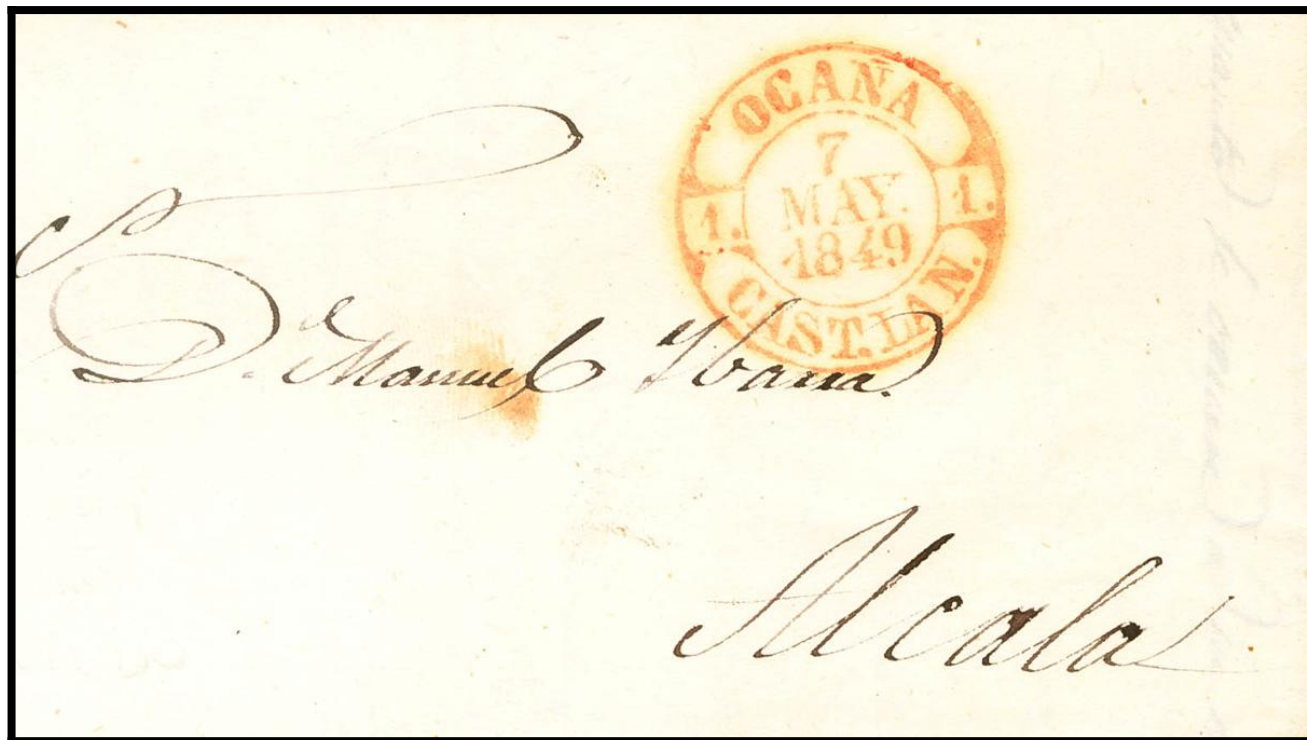 OCAÑA
7
1. MAY. 1.
1849
CAST. LAN.
S
D. Manuel Ybarra.
Alcala